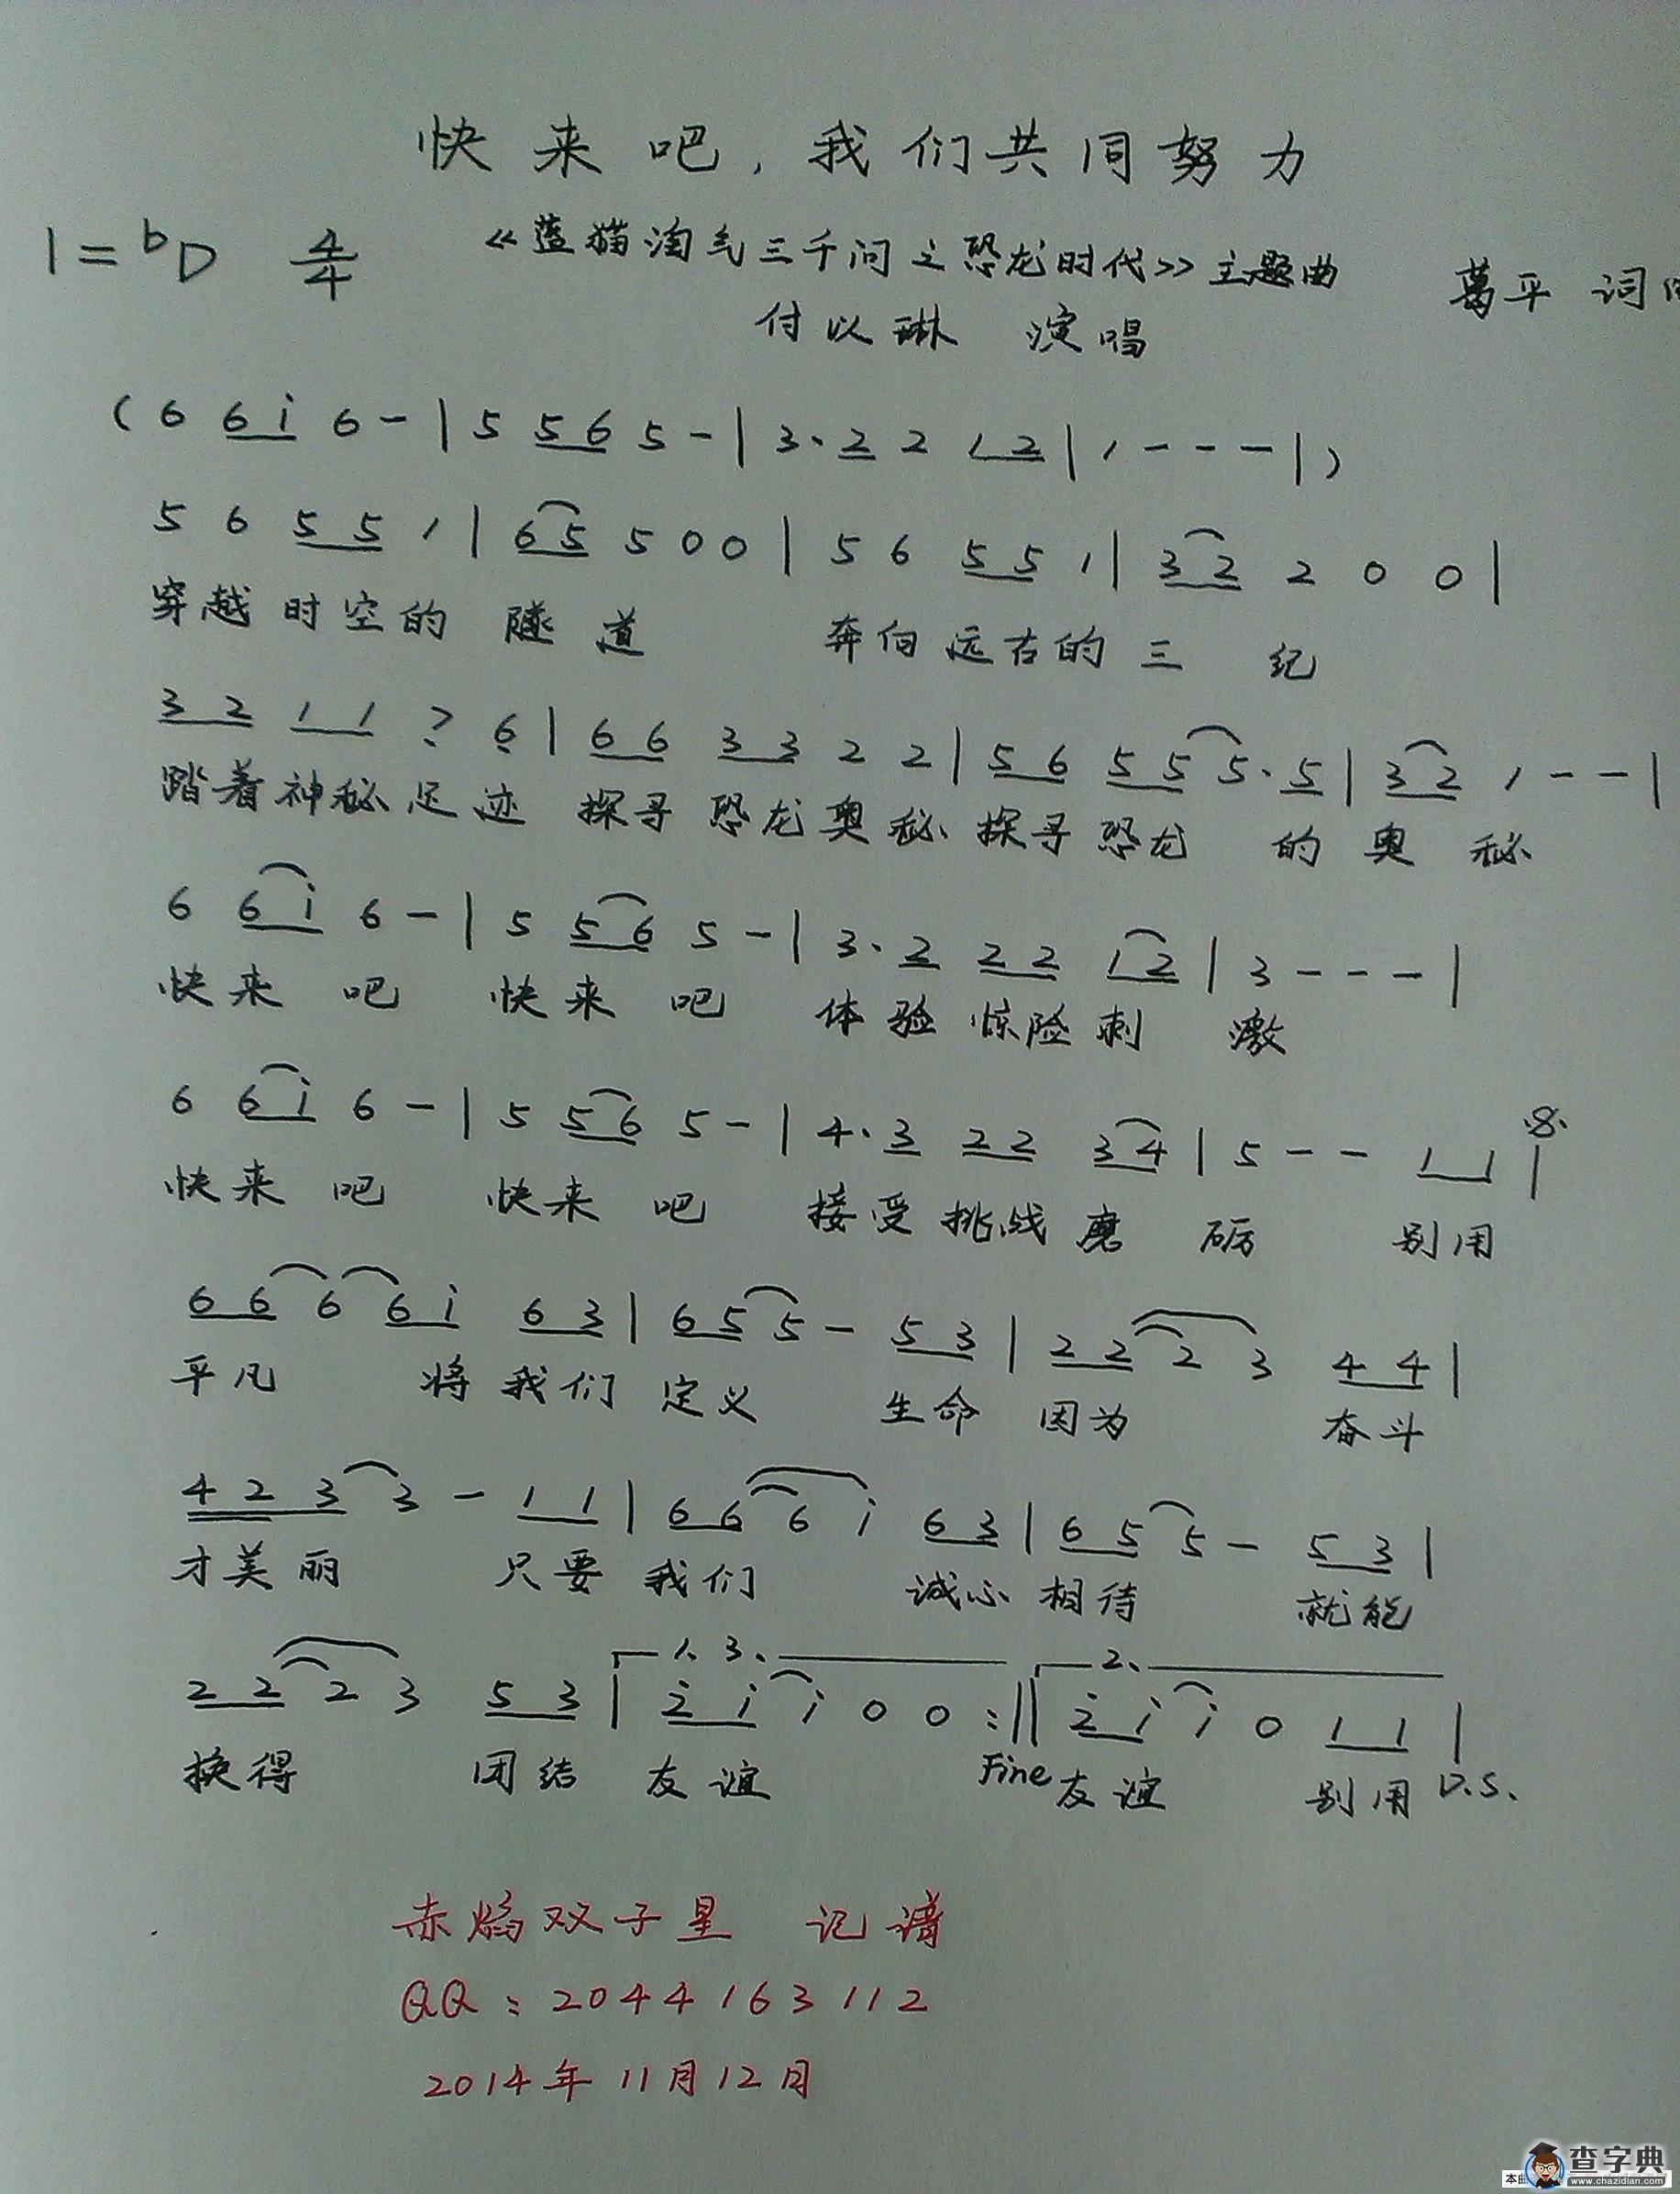 快来吧，我们共同努力
1=bD 4/4 《蓝猫淘气三千问之恐龙时代》主题曲 葛平 词
付以琳 演唱
( 6 6 i 6 - | 5 5 6 5 - | 3· 2 2 1 2 | 1 - - - | )
5 6 5 5 1 | 6 5 5 0 0 | 5 6 5 5 1 | 3 2 2 0 0 |
穿越时空的 隧道 奔向远古的三纪
3 2 1 1 7 6 | 6 6 3 3 2 2 | 5 6 5 5 5· 5 | 3 2 1 - - |
踏着神秘足迹 探寻恐龙奥秘 探寻恐龙 的奥秘
6 6 i 6 - | 5 5 6 5 - | 3· 2 2 2 1 2 | 3 - - - |
快来吧 快来吧 体验惊险刺激
6 6 i 6 - | 5 5 6 5 - | 4· 3 2 2 3 4 | 5 - - 1 1 |
快来吧 快来吧 接受挑战磨砺 别用
6 6 6 6 i 6 3 | 6 5 5 - 5 3 | 2 2 2 3 4 4 |
平凡 将我们定义 生命因为 奋斗
4 2 3 3 - 1 1 | 6 6 6 i 6 3 | 6 5 5 - 5 3 |
才美丽 只要我们 诚心相待 就能
1、3、 2、
2 2 2 3 5 3 | 2 i i 0 0 :|| 2 i i 0 1 1 |
换得 团结友谊 Fine 友谊 别用 D.S.
赤焰双子星 记谱
QQ：2044163112
2014年11月12日
查字典
本曲
www.chazidian.com